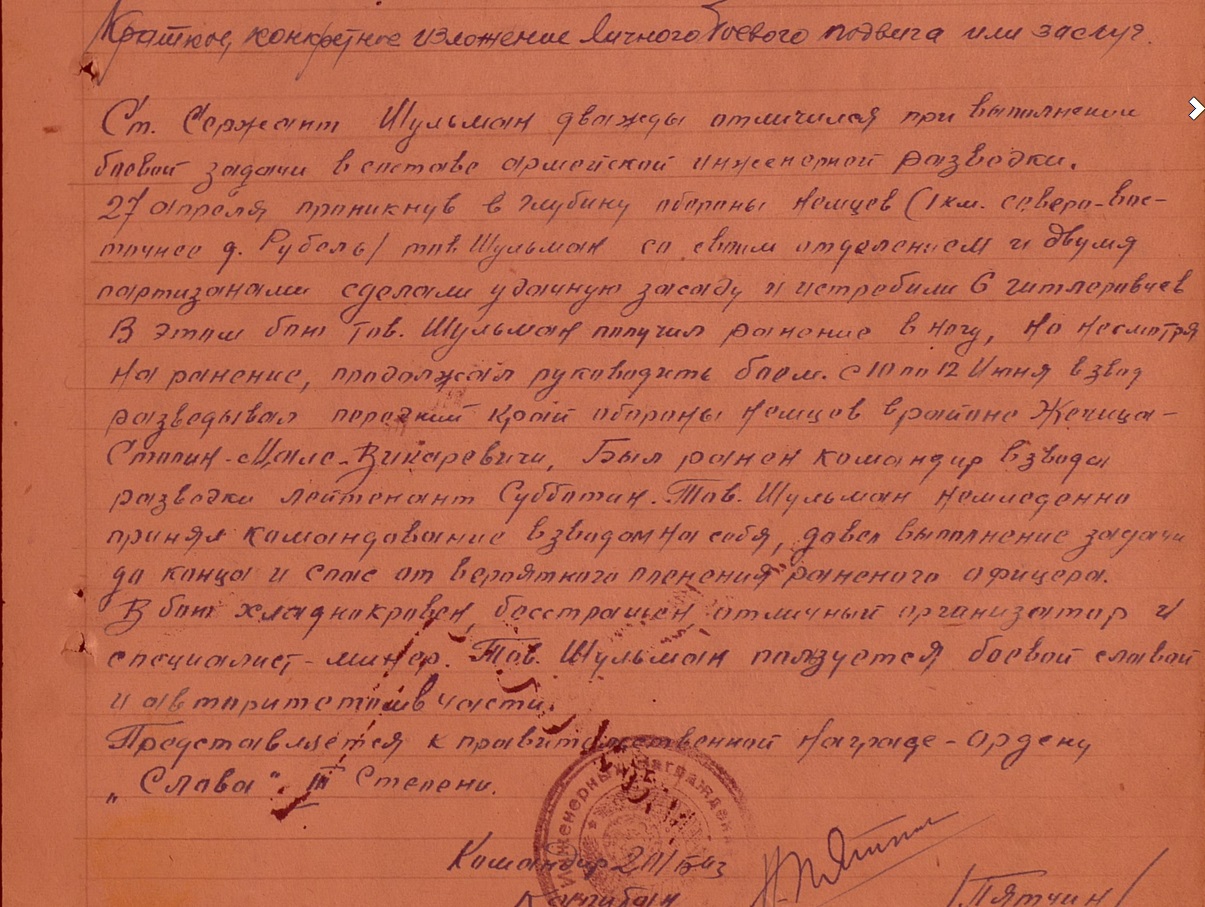 Краткое, конкретное изложение личного боевого подвига или заслуг.
Ст. Сержант Шульман дважды отличился при выполнении
боевой задачи в составе армейской инженерной разведки.
27 апреля проникнув в глубину обороны немцев (1 км. северо-вос-
точнее д. Рубель) тов. Шульман со своим отделением и двумя
партизанами сделали удачную засаду и истребили 6 гитлеровцев
В этом бою тов. Шульман получил ранение в ногу, но несмотря
на ранение, продолжал руководить боем. с 10 по 12 Июня взвод
разведывал передний край обороны немцев в районе Жечица-
Столин-Мало-Викаревичи, Был ранен командир взвода
разведки лейтенант Субботин. Тов. Шульман немледенно
принял командование взводом на себя, довел выполнение задачи
до конца и спас от вероятного пленения раненого офицера.
В бою хладнокровен, бесстрашен, отличный организатор и
специалист-минер. Тов. Шульман пользуется боевой славой
и авторитетом в части.
Представляется к правительственной награде-ордену
„Слава" III Степени.
Инженерных Заграждений
Командир
Пятчин